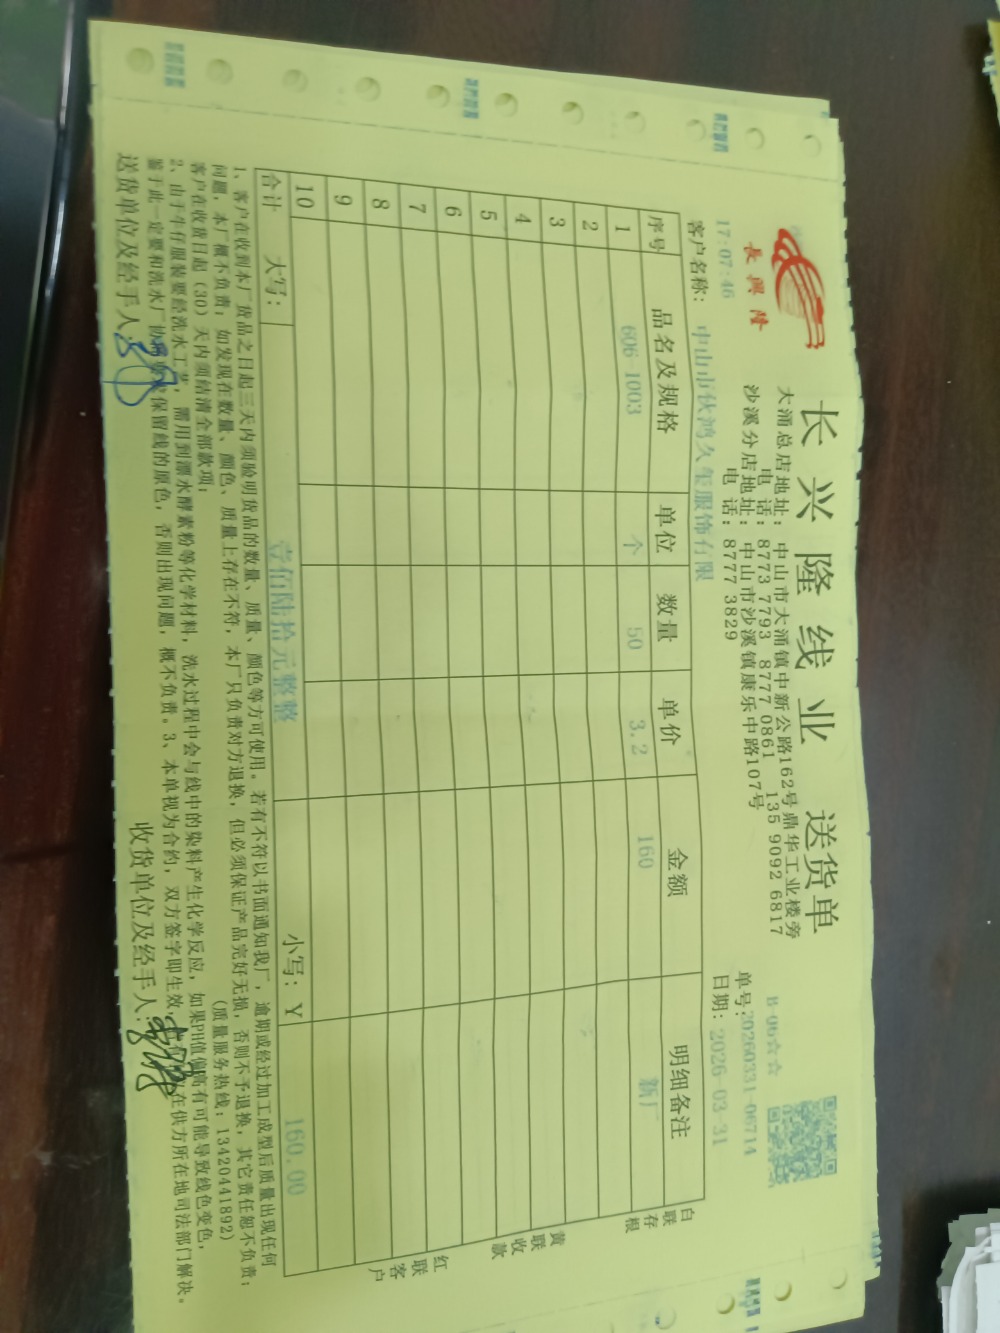 長興隆
长兴隆线业 送货单
大涌总店地址：中山市大涌镇中新公路162号鼎华工业楼旁
电 话：8773 7793 8777 0861 135 9092 6817
沙溪分店地址：中山市沙溪镇康乐中路107号
电 话：8777 3829
B-06☆☆
单号：20260331-06714
日期：2026-03-31
17:07:46
客户名称：中山市伙鸿久玺服饰有限
序号 品名及规格 单位 数量 单价 金额 明细备注
1 606-1003 个 50 3.2 160 新厂
2
3
4
5
6
7
8
9
10
合计 大写：壹佰陆拾元整整 小写：Y 160.00
白联存根
黄联收款
红联客户
1、客户在收到本厂货品之日起三天内须验明货品的数量、质量、颜色等方可使用。若有不符以书面通知我厂，逾期或经过加工成型后质量出现任何
问题，本厂概不负责；如发现在数量、颜色、质量上存在不符，本厂只负责对方退换，但必须保证产品完好无损，否则不予退换，其它责任恕不负责；
客户在收货日起（30）天内须结清全部款项； （质量服务热线：13420441892）
2、由于牛仔服装要经洗水工艺，需用到漂水酵素粉等化学材料，洗水过程中会与线中的染料产生化学反应，如果PH值偏高有可能导致线色变色，
鉴于此一定要和洗水厂协 保留线的原色，否则出现问题，概不负责。3、本单视为合约，双方签字即生效， 在供方所在地司法部门解决。
送货单位及经手人： 收货单位及经手人：